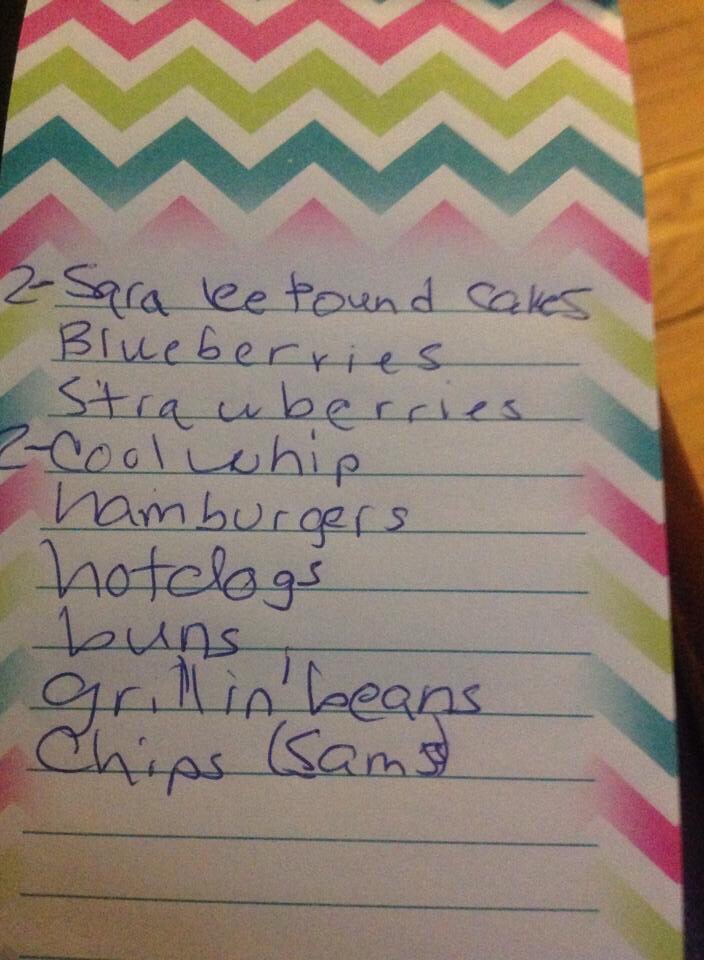 2-Sara lee Pound Cakes
Blueberries
Strawberries
2-Cool whip
hamburgers
hotdogs
buns
grillin' beans
Chips (Sams)